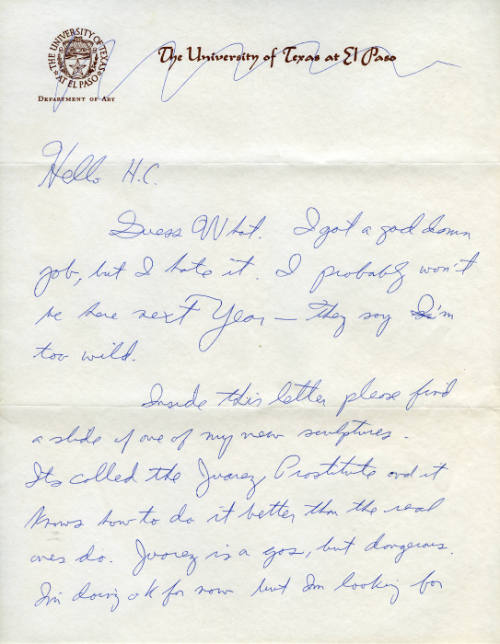 THE UNIVERSITY OF TEXAS AT EL PASO
The University of Texas at El Paso
DEPARTMENT OF ART
Hello H.C.
Guess What. I got a god damn
job, but I hate it. I probably won't
be here next Year — they say I'm
too wild.
Inside this letter please find
a slide of one of my new sculptures.
Its called the Juarez Prostitute and it
knows how to do it better than the real
ones do. Juarez is a gas, but dangerous.
I'm doing ok for now but I'm looking for